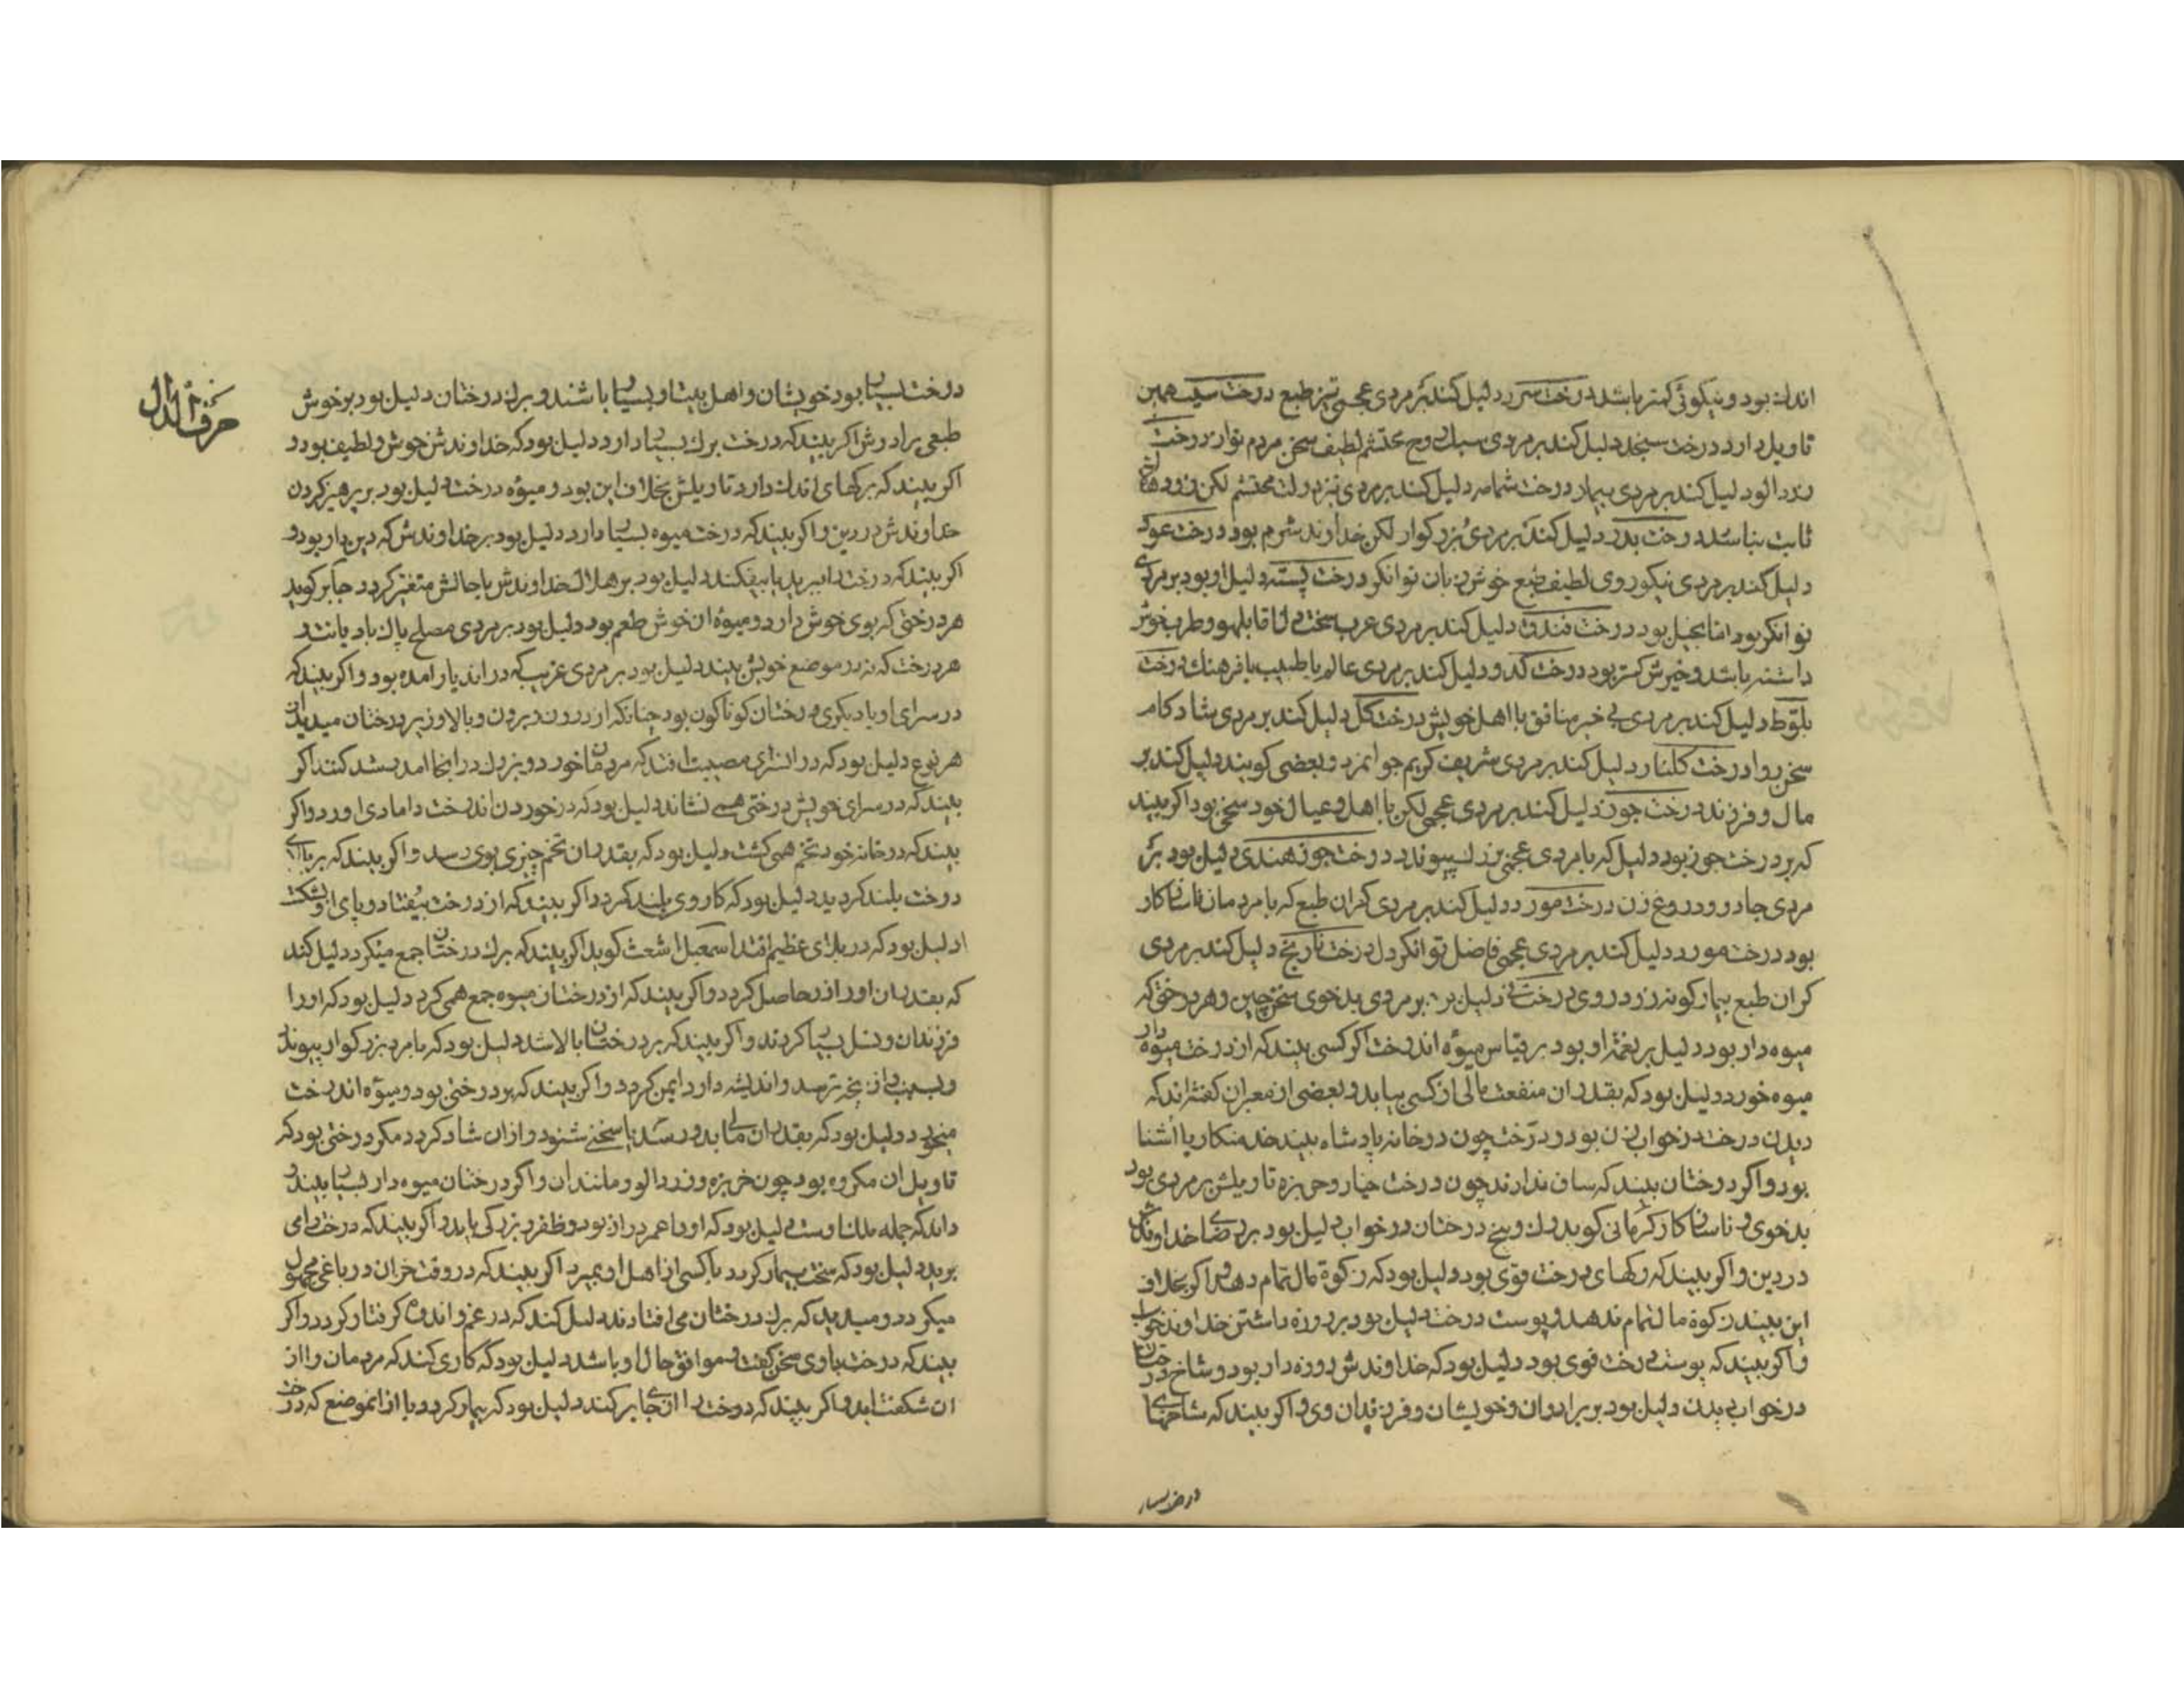 اندك بود و نیکوئی کمتر باشد درخت سرو دلیل کند بر مردی عجمی تیز طبع درخت سیب همین
تاویل دارد درخت سنجد دلیل کند بر مردی سبك روح محتشم لطیف سخن مردم نواز درخت
زردالو دلیل کند بر مردی بیمار درخت شمامه دلیل کند بر مردی نیز دولت محتشم لکن زود
ثابت نباشد درخت دلیل کند بر مردی بزرکوار لکن خداوند شرم بود درخت عود
دلیل کند بر مردی نیکو روی لطیف طبع خوش زبان توانکر درخت پسته دلیل او بود بر مردی
توانکر بود اما بخیل بود درخت فندق دلیل کند بر مردی عرب سخت دل اما بلهو و طرب خوش
داشته باشد و خیرش کمتر بود درخت کدو دلیل کند بر مردی عالم یا طبیب با فرهنك درخت
بلوط دلیل کند بر مردی بی خبر منافق با اهل خویش درخت کل دلیل کند بر مردی شاد کام
سخن روا درخت کلنار دلیل کند بر مردی شریف کریم جوانمرد و بعضی کویند دلیل کند بر
مال و فرزند درخت جوز دلیل کند بر مردی عجمی لکن با اهل و عیال خود سخی بود اکر بیند
که بر درخت جوز بود دلیل که با مردی عجمی بزرك پیوندد درخت جوز هندی دلیل بود بر
مردی جادو و دروغ زن درخت مورد دلیل کند بر مردی کران طبع که با مردمان ناسازکار
بود درخت مورد دلیل کند بر مردی عجمی فاضل توانکر دل درخت نارنج دلیل کند بر مردی
کران طبع بیمار کونه زرد روی درخت نی دلیل بر مردی بدخوی سخن چین و هر درختی که
میوه دار بود دلیل بر نعمة او بود بر قیاس میوه اندرخت اکر کسی بیند که از درخت میوه دار
میوه خورد دلیل بود که بقدر ان منفعت مالی از کسی بیابد و بعضی از معبران کفته اند که
دیدن درخت در خواب زن بود و درخت چون در خانه پادشاه بیند خدمتکار یا اشنا
بود و اکر درختان بیند که ساق ندارند چون درخت خیار و خربزه تاویلش بر مردی بود
بدخوی و ناسازکار کرمانی کوید رك و بیخ درختان در خواب دلیل بود بر رضا خداوندش
در دین و اکر بیند که رکهای درخت قوی بود دلیل بود که زکوة مال تمام دهد و اکر بخلاف
این بیند زکوة مال تمام ندهد و پوست درخت دلیل بود بر روزه داشتن خداوند خواب
و اکر بیند که پوست درخت قوی بود دلیل بود که خداوندش روزه دار بود و شاخ درختان
در خواب دیدن دلیل بود بر برادران و خویشان و فرزندان وی و اکر بیند که شاخهای
درخت بسیار
درخت بسیار بود خویشان و اهل بیت او بسیار باشند و برك درختان دلیل بود بر خوش
طبعی برادرش اکر بیند که درخت برك بسیار دارد دلیل بود که خداوندش خوش و لطیف بود و
اکر بیند که برکهای اندك دارد تاویلش بخلاف این بود و میوه درخت دلیل بود بر پرهیز کردن
خداوندش در دین و اکر بیند که درخت میوه بسیار دارد دلیل بود بر خداوندش که دین دار بود و
اکر بیند که درخت را ببرید یا بیفکند دلیل بود بر هلاك خداوندش یا حالش متغیر کردد جابر کوید
هر درختی که بوی خوش دارد و میوه ان خوش طعم بود دلیل بود بر مردی مصلح پاك باد یانت و
هر درخت که نه در موضع خویش بیند دلیل بود بر مردی غریب که در اندیار امده بود و اکر بیند که
در سرای او یا دیکری درختان کوناکون بود چنانکه از درون و برون و بالا و زیر درختان میدید از
هر نوع دلیل بود که در انسرای مصیبت افتد که مردمان خورد و بزرك در انجا امد شد کنند اکر
بیند که در سرای خویش درختی همی نشاند دلیل بود که در خورد ان اندرخت دامادی اورد و اکر
بیند که در خانه خود تخم همی کشت دلیل بود که بقدر ان تخم چیزی بوی رسد و اکر بیند که بر بالای
درخت بلند کردید دلیل بود که کار وی بلند کردد اکر بیند که از درخت بیفتاد و پای او بشکست
دلیل بود که در بلای عظیم افتد اسمعیل اشعث کوید اکر بیند که برك درختان جمع میکرد دلیل کند
که بقدر ان او را زر حاصل کردد و اکر بیند که از درختان میوه جمع همی کرد دلیل بود که او را
فرزندان و نسل بسیار کردند و اکر بیند که بر درختان بالا شد دلیل بود که با مرد بزرکوار پیوندد
و بسبب وی از انچه ترسد و اندیشه دارد ایمن کردد و اکر بیند که بر درختی بود و میوه اندرخت
میخورد دلیل بود که بقدر ان مال بدو رسد یا سخنی شنود و از ان شاد کردد مکر درختی بود که
تاویل ان مکروه بود چون خربزه و زردالو و مانند ان و اکر درختان میوه دار بسیار بیند و
داند که جمله ملك اوست دلیل بود که او را عمر دراز بود و ظفر و بزرکی یابد و اکر بیند که درخت را می
برید دلیل بود که سخت بیمار کردد یا کسی از اهل او بمیرد اکر بیند که در وقت خزان در باغی مجهول
میکردد و میدید که برك درختان می افتادند دلیل کند که در غم و اندوه کرفتار کردد و اکر
بیند که درخت با وی سخن کفت و موافق حال او باشد دلیل بود که کاری کند که مردمان را از
ان شکفت اید و اکر بیند که درخت را از انجا بر کند دلیل بود که بیمار کردد یا از انموضع که درخت
حرف الدال